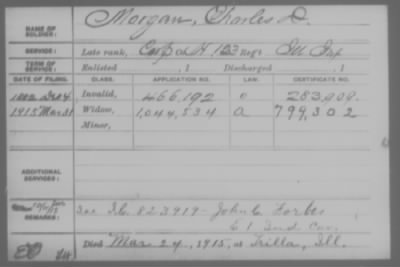 NAME OF SOLDIER: Morgan, Charles D.
SERVICE: Late rank, Corp Co. H, 123 Regt Ill Inf
TERM OF SERVICE: Enlisted , 1 Discharged , 1
DATE OF FILING. CLASS. APPLICATION NO. LAW. CERTIFICATE NO.
Invalid, 466,192 283,909.
1915 Mar 31 Widow, 1,044,534 a 799,302
Minor,
ADDITIONAL SERVICES:
REMARKS: 823919 John C. Forbes
Died Mar 24, 1915, at Trilla, Ill.